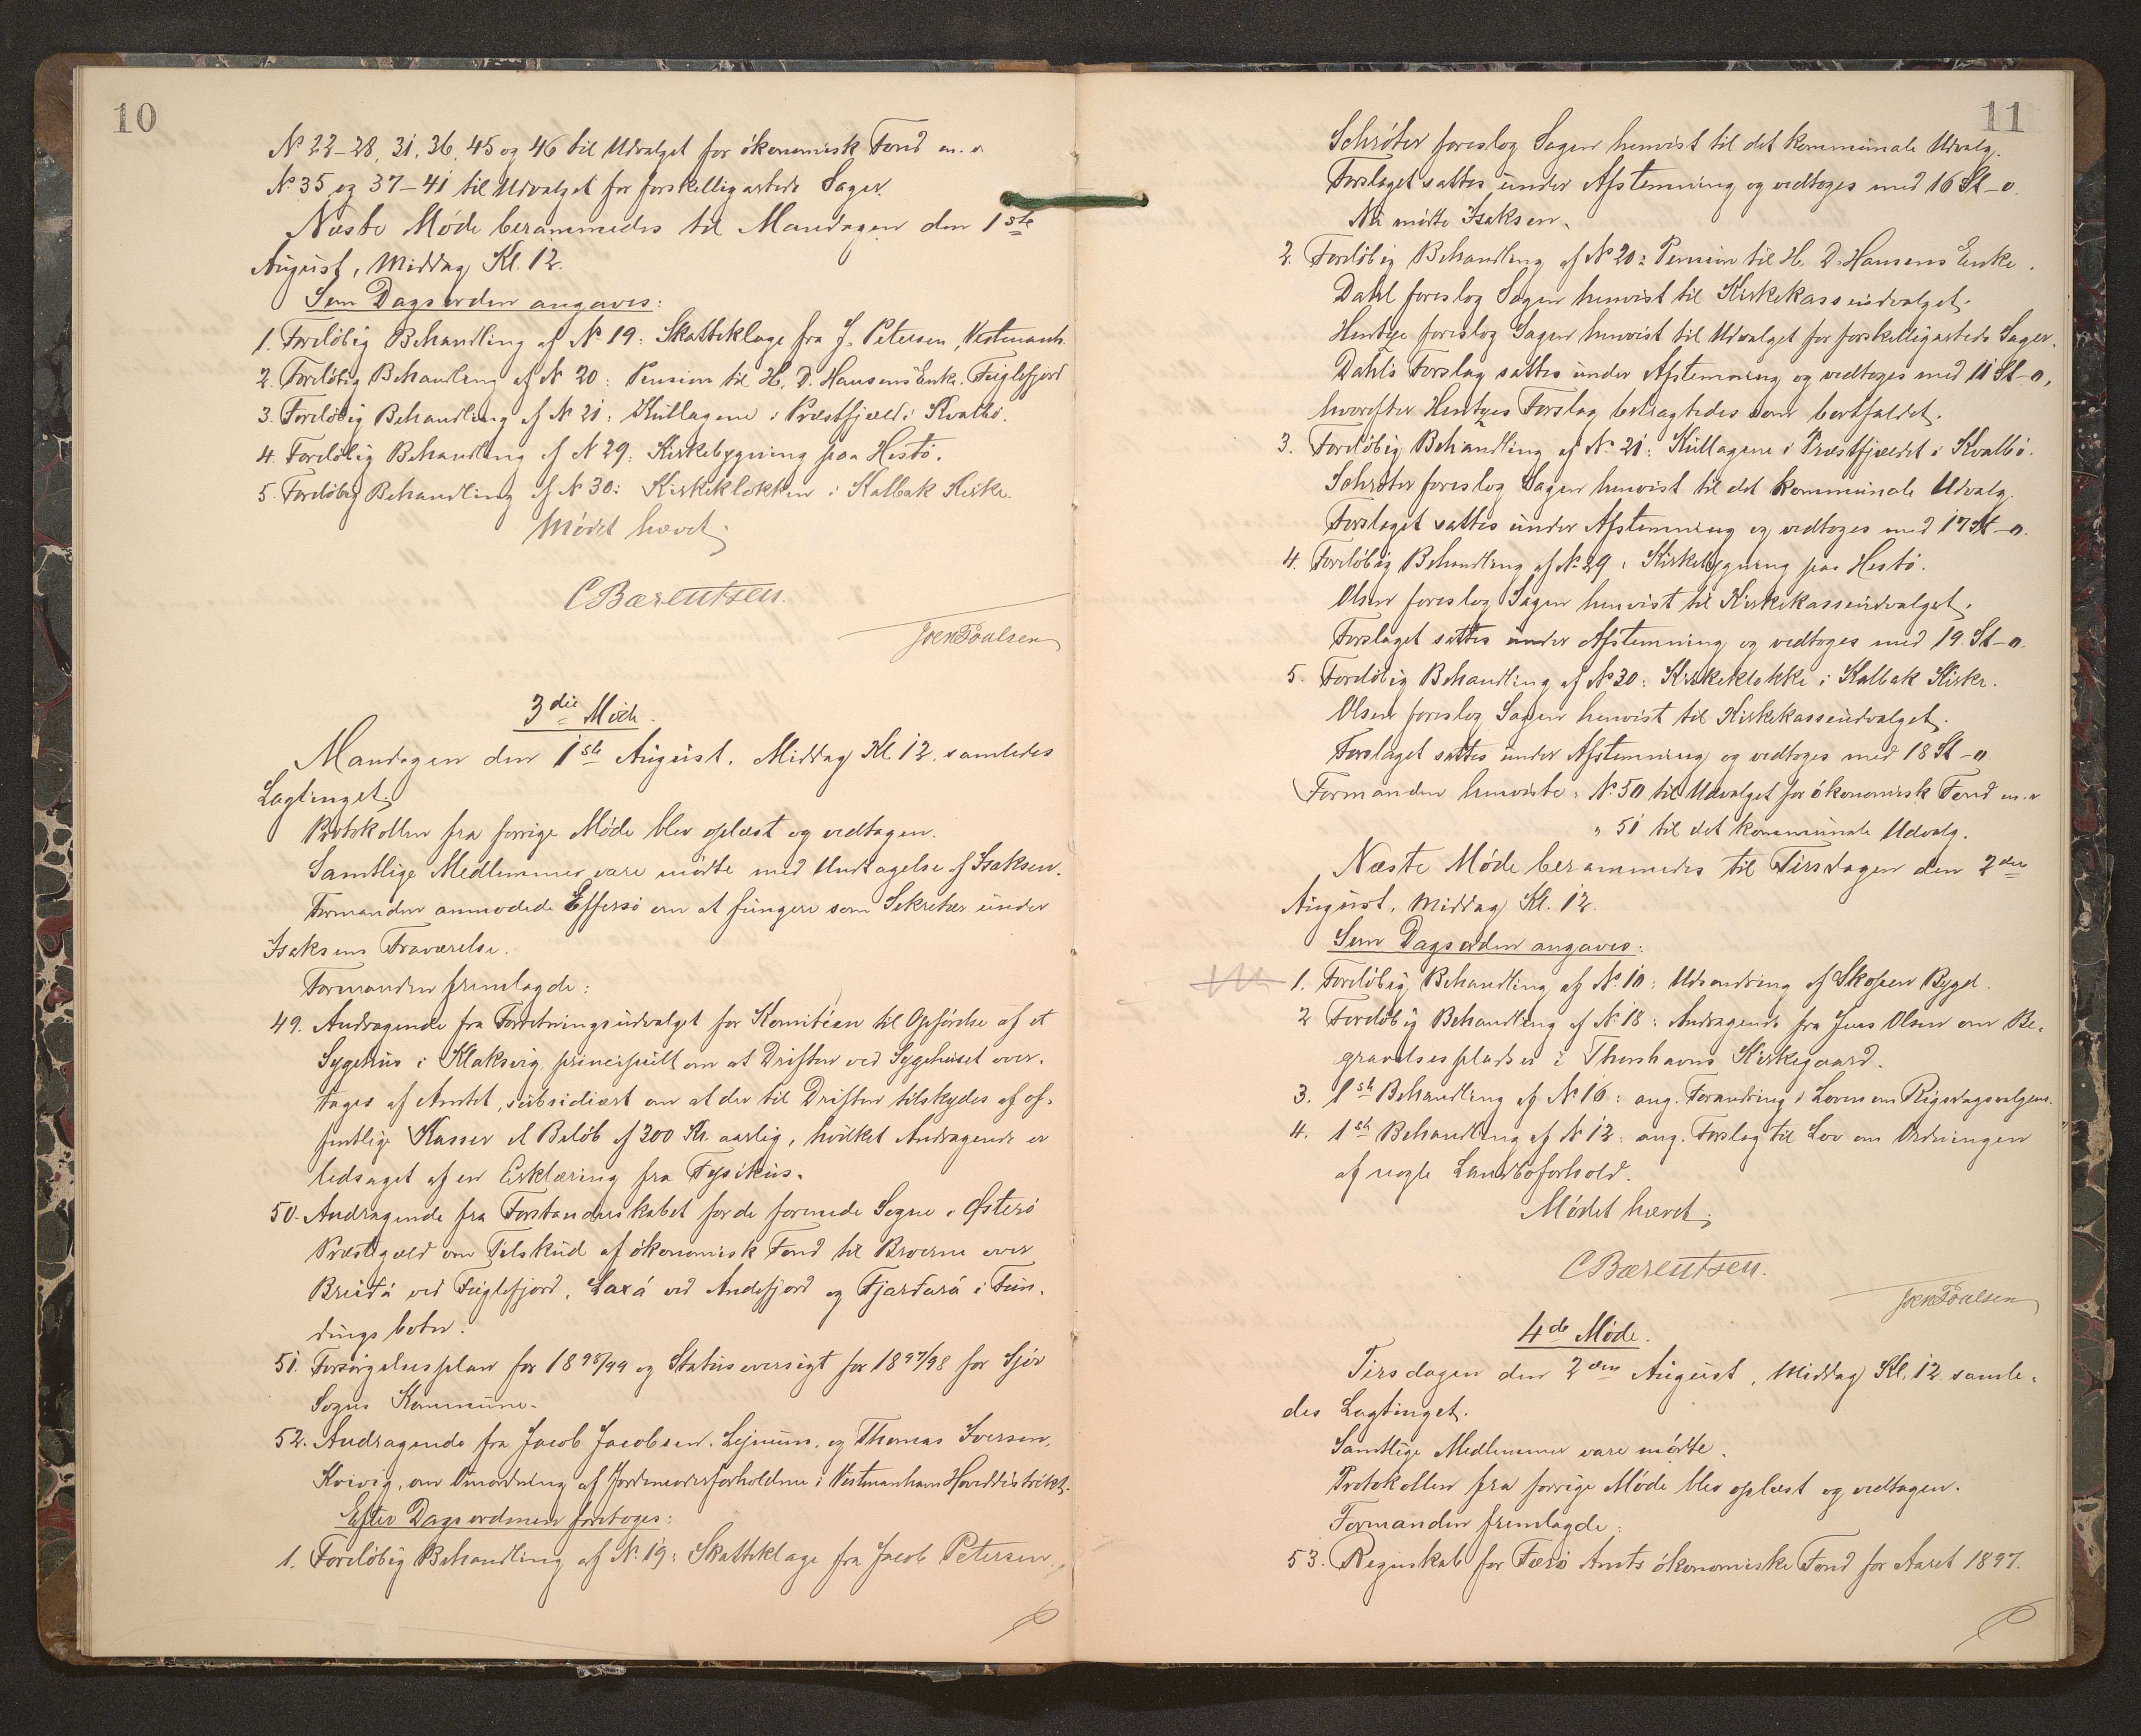 10
No 22-28, 31, 36, 45 og 46 til Udvalget for ökonomisk Fond m. v
No 35 og 37-41 til Udvalget for forskelligartede Sager.
Næste Møde berammedes til Mandagen den 1ste
August, Middag Kl. 12.
Som Dagsorden angaves:
1. Foreløbig Behandling af No 19: Skatteklage fra J. Petersen, Vestmanh.
2. Foreløbig Behandling af No 20: Pension til H. D. Hansens Enke, Fuglefjord
3. Foreløbig Behandling af No 21: Kullagene i Præstfjeld i Kvalbø.
4. Foreløbig Behandling af No 29: Kirkebygning paa Hestø.
5. Foreløbig Behandling af No 30: Kirkeklokken i Kalbak Kirke.
Mødet hævet.
C Bærentsen.
Joen Poulsen
3die Møde.
Mandagen den 1ste August, Middag Kl 12. samledes
Lagtinget.
Protokollen fra forrige Møde blev oplæst og vedtagen.
Samtlige Medlemmer vare mødte med Undtagelse af Isaksen.
Formanden anmodede Effersø om at fungere som Sekretær under
Isaksens Fraværelse.
Formanden fremlagde:
49. Andragende fra Forretningsudvalget for Komitéen til Opførelse af et
Sygehus i Klaksvig, principalt om at Driften ved Sygehuset over-
tages af Amtet, subsidiært om at der til Driften tilskydes af of-
fentlige Kasser et Beløb af 300 Kr. aarlig, hvilket Andragende er
ledsaget af en Erklæring fra Fysikus.
50. Andragende fra Forstanderskabet for de forenede Sogne i Østerø
Præstegæld om Tilskud af ökonomisk Fond til Broerne over
Breidá ved Fuglefjord, Laxá ved Andefjord og Fjardará i Fun-
dingsbotn.
51. Forsørgelsesplan for 1898/99 og Statusoversigt for 1897/98 for Sjóv
Sogns Kommune.
52. Andragende fra Jacob Jacobsen, Lejnum, og Thomas Iversen,
Kvivig, om Omordning af Jordemoderforholdene i Vestmanhavn Hoveddistrikt.
Efter Dagsordenen foretoges:
1. Foreløbig Behandling af No 19: Skatteklage fra Jacob Petersen.
11
Schrøter foreslog Sagen henvist til det kommunale Udvalg.
Forslaget sattes under Afstemning og vedtoges med 16 St-0.
Nu mødte Isaksen.
2. Foreløbig Behandling af No 20: Pension til H. D. Hansens Enke.
Dahl foreslog Sagen henvist til Kirkekasseudvalget.
Hentze foreslog Sagen henvist til Udvalget for forskelligartede Sager.
Dahls Forslag sattes under Afstemning og vedtoges med 11 St-0,
hvorefter Hentzes Forslag betragtedes som bortfaldet.
3. Foreløbig Behandling af No 21: Kullagene i Præstfjældet i Kvalbø.
Schrøter foreslog Sagen henvist til det kommunale Udvalg.
Forslaget sattes under Afstemning og vedtoges med 17 St-0.
4. Foreløbig Behandling af No 29: Kirkebygning paa Hestø.
Olsen foreslog Sagen henvist til Kirkekasseudvalget.
Forslaget sattes under Afstemning og vedtoges med 19. St-0.
5. Foreløbig Behandling af No 30: Kirkeklokke i Kalbak Kirke.
Olsen foreslog Sagen henvist til Kirkekasseudvalget.
Forslaget sattes under Afstemning og vedtoges med 18 St-0
Formanden henviste: No 50 til Udvalget for ökonomisk Fond m. v
" 51 til det kommunale Udvalg.
Næste Møde berammedes til Tirsdagen den 2den
August, Middag Kl. 12.
Som Dagsorden angaves:
1. Foreløbig Behandling af No 10: Udsondring af Skopen Bygd.
2 Foreløbig Behandling af No 18: Andragende fra Jens Olsen om Be-
gravelsespladser i Thorshavns Kirkegaard.
3. 1ste Behandling af No 16: ang. Forandring i Loven om Rigsdagsvalgene.
4. 1ste Behandling af No 12: ang. Forslag til Lov om Ordningen
af nogle Landboforhold.
Mødet hævet.
C Bærentsen.
Joen Poulsen
4de Møde.
Tirsdagen den 2den August, Middag Kl. 12. samle-
des Lagtinget.
Samtlige Medlemmer vare mødte.
Protokollen fra forrige Møde blev oplæst og vedtagen.
Formanden fremlagde:
53. Regnskab for Færø Amts ökonomiske Fond for Aaret 1897.